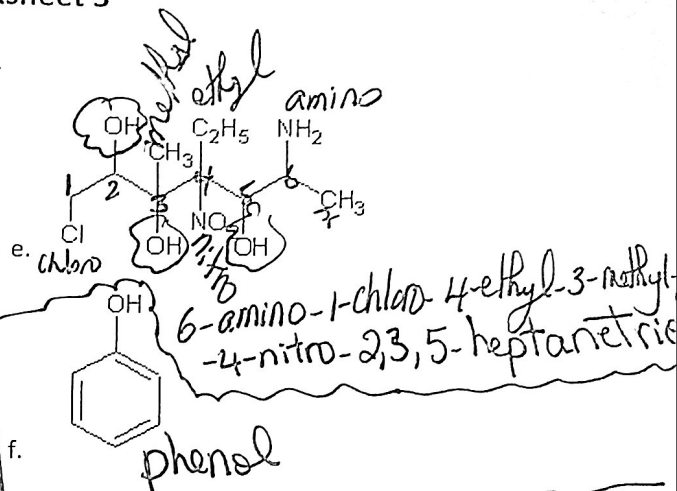 methyl
ethyl
amino
OH
CH3
C2H5
NH2
1
2
3
4
5
6
7
CH3
Cl
OH
NO2
OH
e.
chloro
nitro
OH
6-amino-1-chloro-4-ethyl-3-methyl-
-4-nitro-2,3,5-heptanetrio
f.
phenol